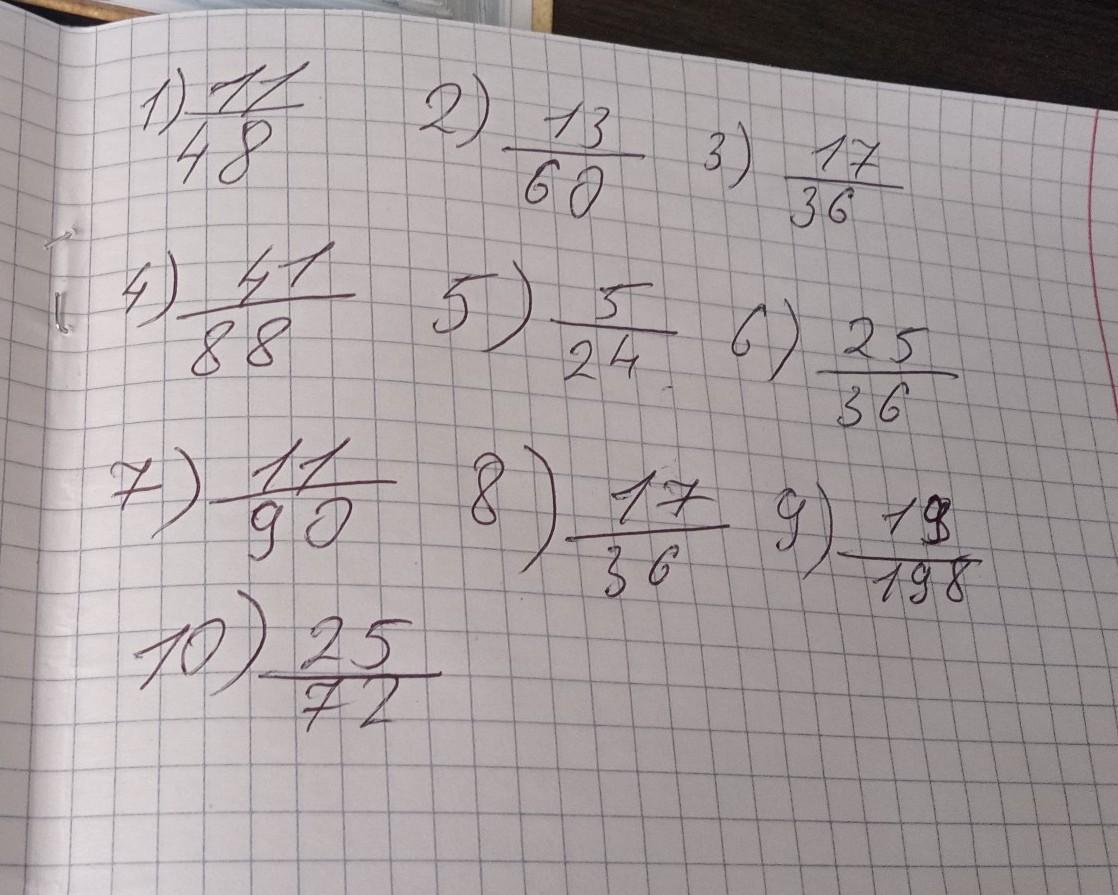 1) 11/48 2) 13/60 3) 17/36
4) 41/88 5) 5/24 6) 25/36
7) 11/90 8) 17/36 9) 19/198
10) 25/72